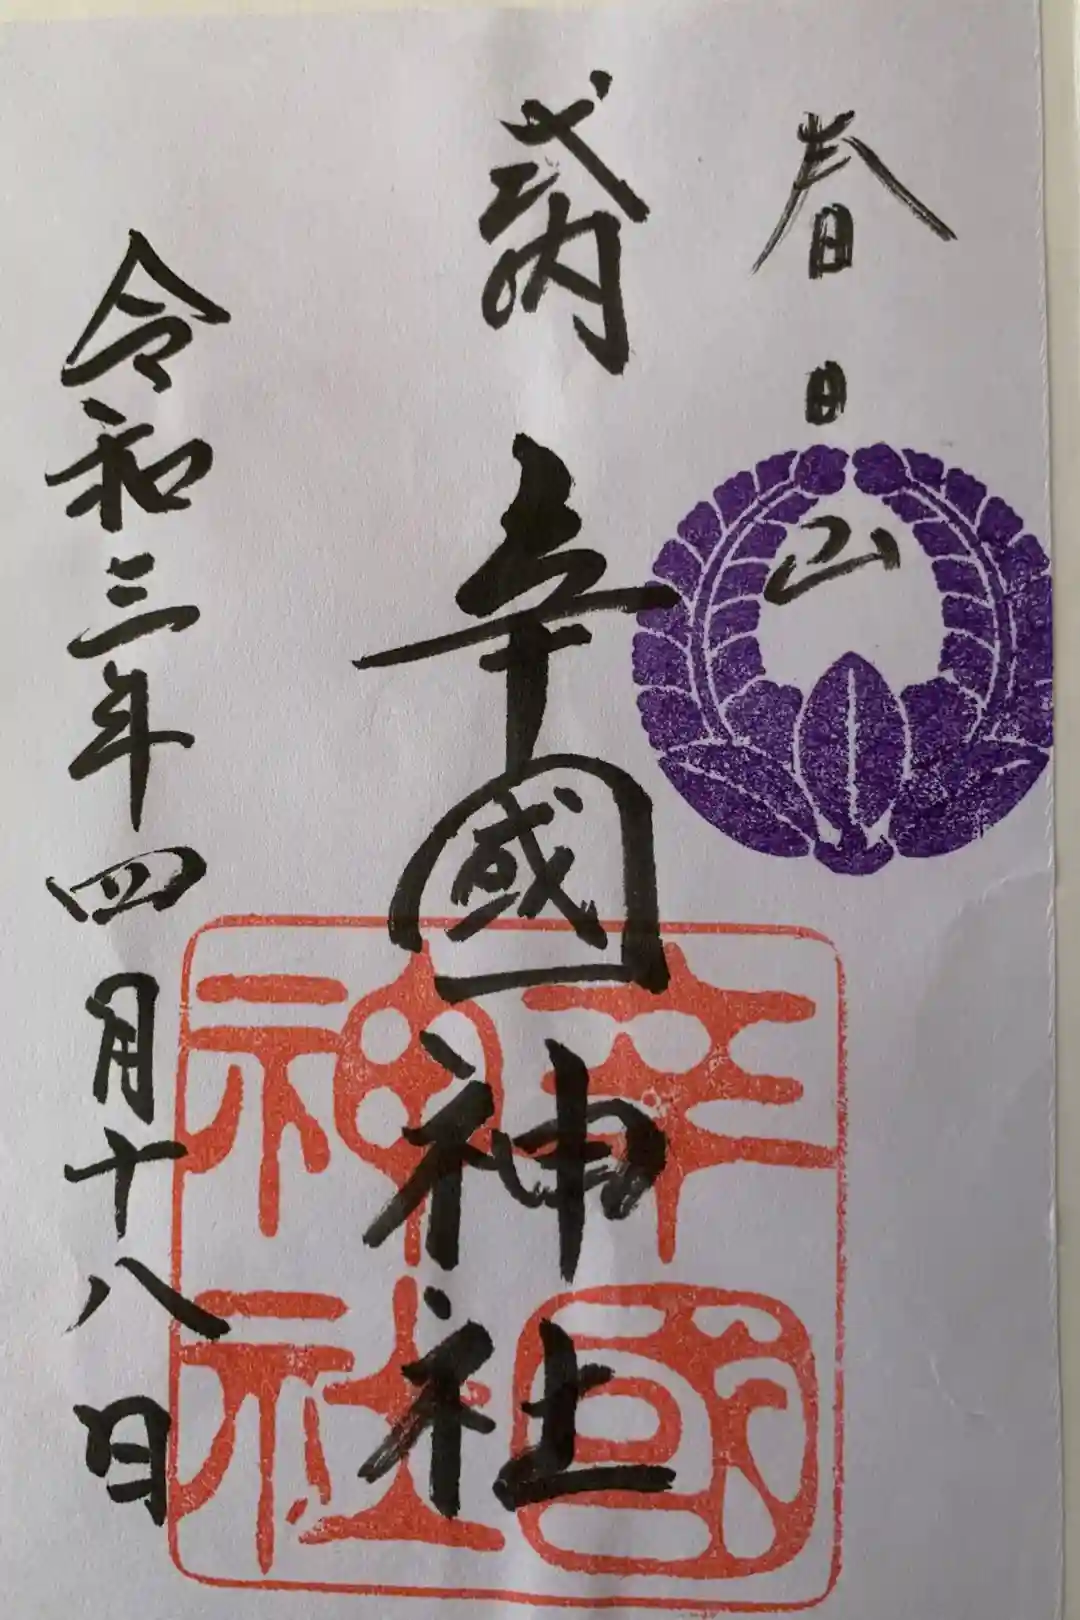 春日山
式内 辛國神社
令和三年四月十八日
辛國
神社